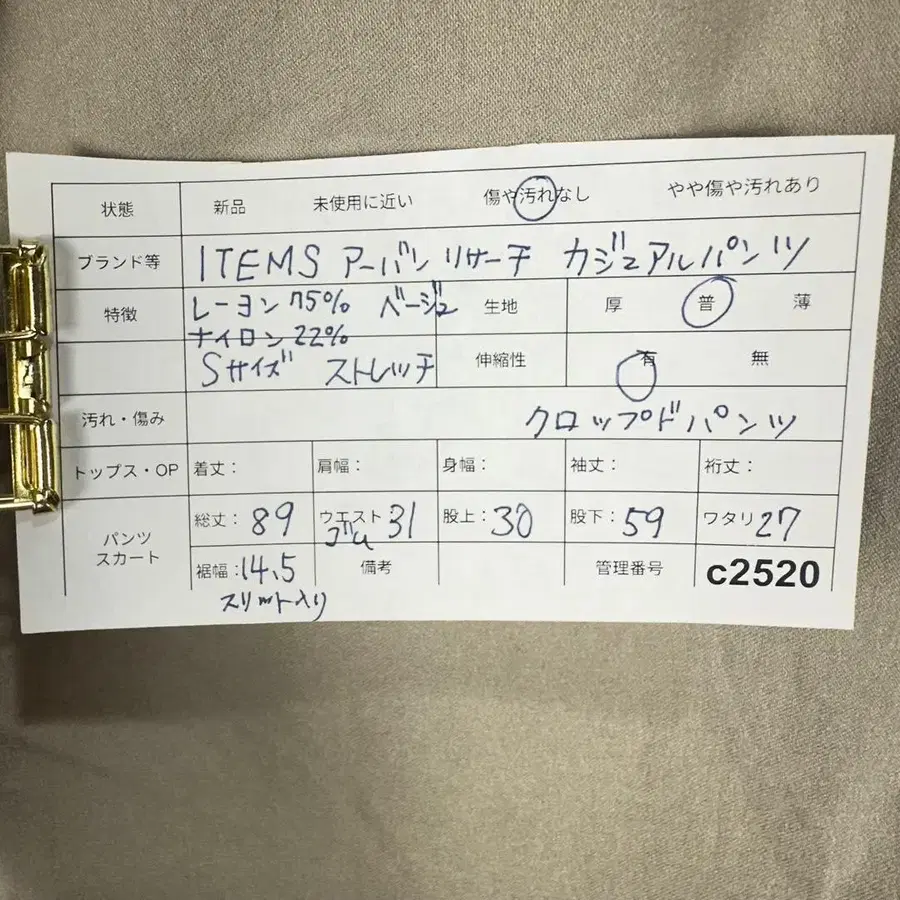 状態 新品 未使用に近い 傷や汚れなし やや傷や汚れあり
ブランド等 ITEMS アーバンリサーチ カジュアルパンツ
特徴 レーヨン75% ベージュ 生地 厚 普 薄
ナイロン22%
Sサイズ ストレッチ 伸縮性 有 無
汚れ・傷み クロップドパンツ
トップス・OP 着丈: 肩幅: 身幅: 袖丈: 裄丈:
パンツ スカート 総丈: 89 ウエスト 31 股上: 30 股下: 59 ワタリ 27
ゴム
裾幅: 14.5 備考 管理番号 c2520
スリット入り